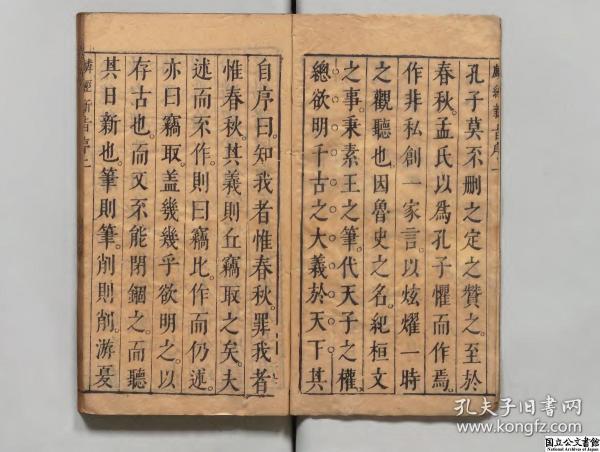 孔子莫不刪之定之贊之。至於
春秋。孟氏以爲孔子懼而作焉。
作非私創一家言。以炫燿一時
之觀聽也。因魯史之名。紀桓文
之事。秉素王之筆。代天子之權。
總欲明千古之大義於天下。其
自序曰。知我者惟春秋。罪我者
惟春秋。其義則丘竊取之矣。夫
述而不作。則曰竊比。作而仍述。
亦曰竊取。蓋幾幾乎欲明之。以
存古也。而又不能閉錮之。而聽
其日新也。筆則筆。削則削。游夏
麟經新旨序 一
麟經新旨序 二
孔夫子旧书网
www.kongfz.com
国立公文書館
National Archives of Japan